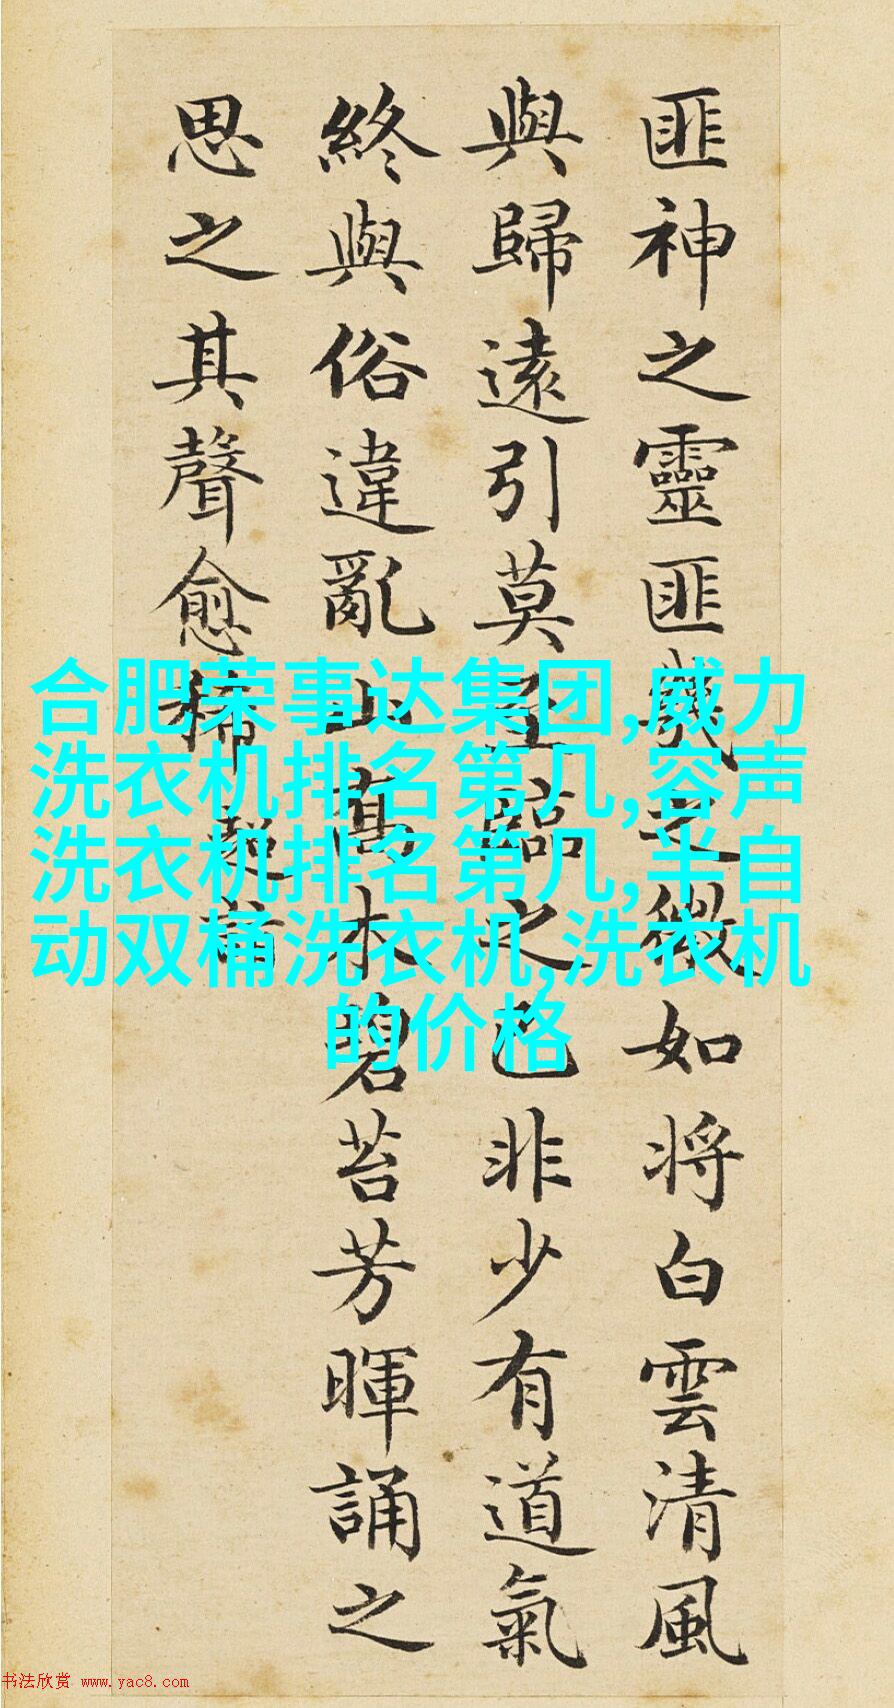 匪神之靈匪幾之微如將白雲清風
與歸遠引莫至臨之已非少有道氣
終與俗違亂山高木碧苔芳暉誦之
思之其聲愈稀
超詣
合肥荣事达集团,威力
洗衣机排名第几,容声
洗衣机排名第几,半自
动双桶洗衣机,洗衣机
的价格
书法欣赏 www.yac8.com